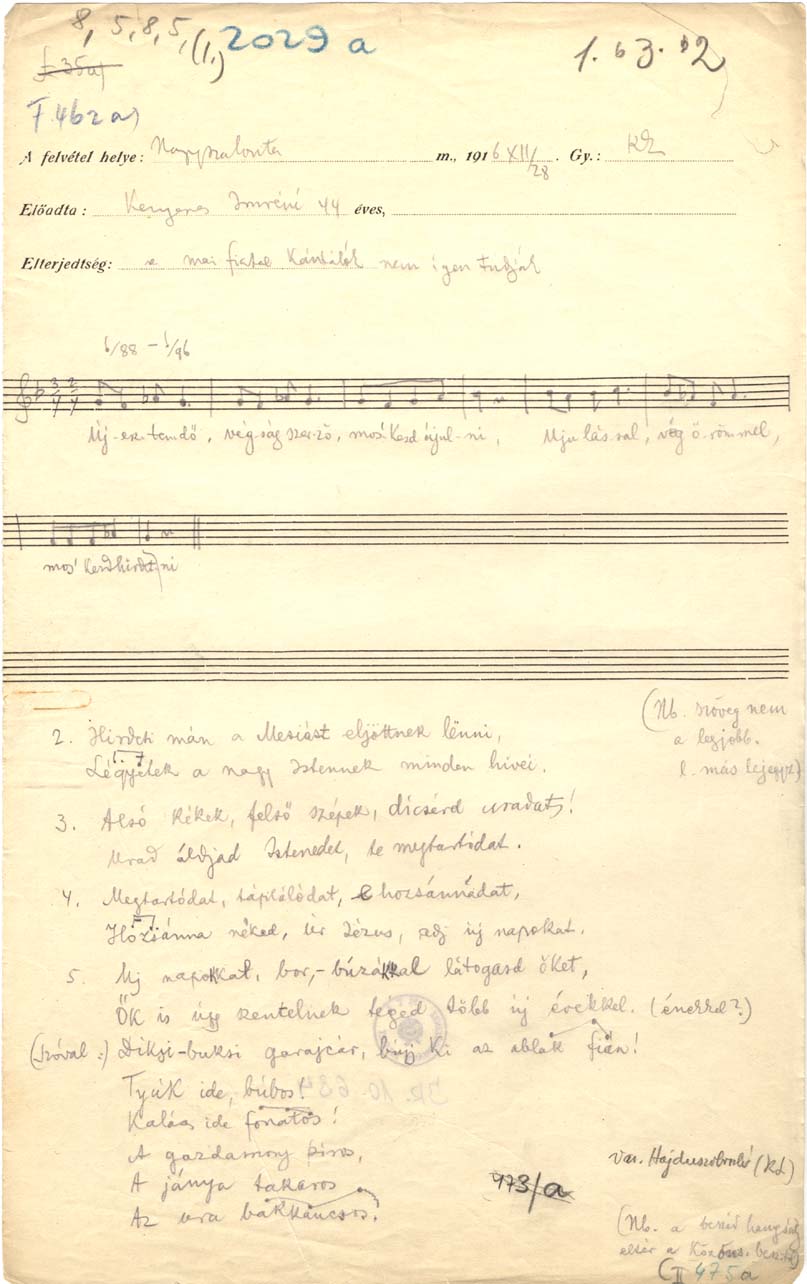 8, 5, 8, 5, (1.) 2029 a
1. b3. b2
F.462 a)
A felvétel helye: Nagyszalonta m., 1916 XII/28. Gy.: KZ
Előadta: Kenyeres Imréné 44 éves,
Elterjedtség: a mai fiatal kántálók nem igen tudják
Új esztendő, vígság szerző, mos' kezd újul-ni, Ujulással, víg örömmel,
mos' kezd hirdetni
(Nb. szöveg nem
a legjobb.
l. más lejegyz)
2. Hirdeti mán a Mesiást eljöttnek lënni,
Légyetek a nagy Istennek minden hívei.
3. Alsó kékek, felső szépek, dícsérd uradat!
Urad áldjad Istenedet, te megtartódat.
4. Megtartódat, táplálódat, hozsánnádat,
Hozsánna néked, Úr Jézus, adj új napokat.
5. Uj napokkal, bor,- búzákkal látogasd őket,
Ők is úgy szentelnek téged több új évekkel. (énekkel?)
(Szóval:) Diksi-buksi garajcár, bújj ki az ablak fián!
Tyúk ide, búbos!
Kalács ide fonatos!
A gazdasszony piros,
A jánya takaros
Az ura bakkancsos.
473/a
Var. Hajduszoboszló (KL)
(Nb. a beszéd hangsúly
eltér a közöns. beszéd)
C II 475a